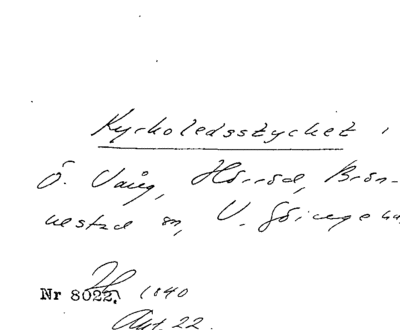 Kyrkoledsstycket i
Ö. Vång, Hörröd, Brön-
nestad sn, V. Göinge hd
Nr 8022. 1:40
Akt. 22.